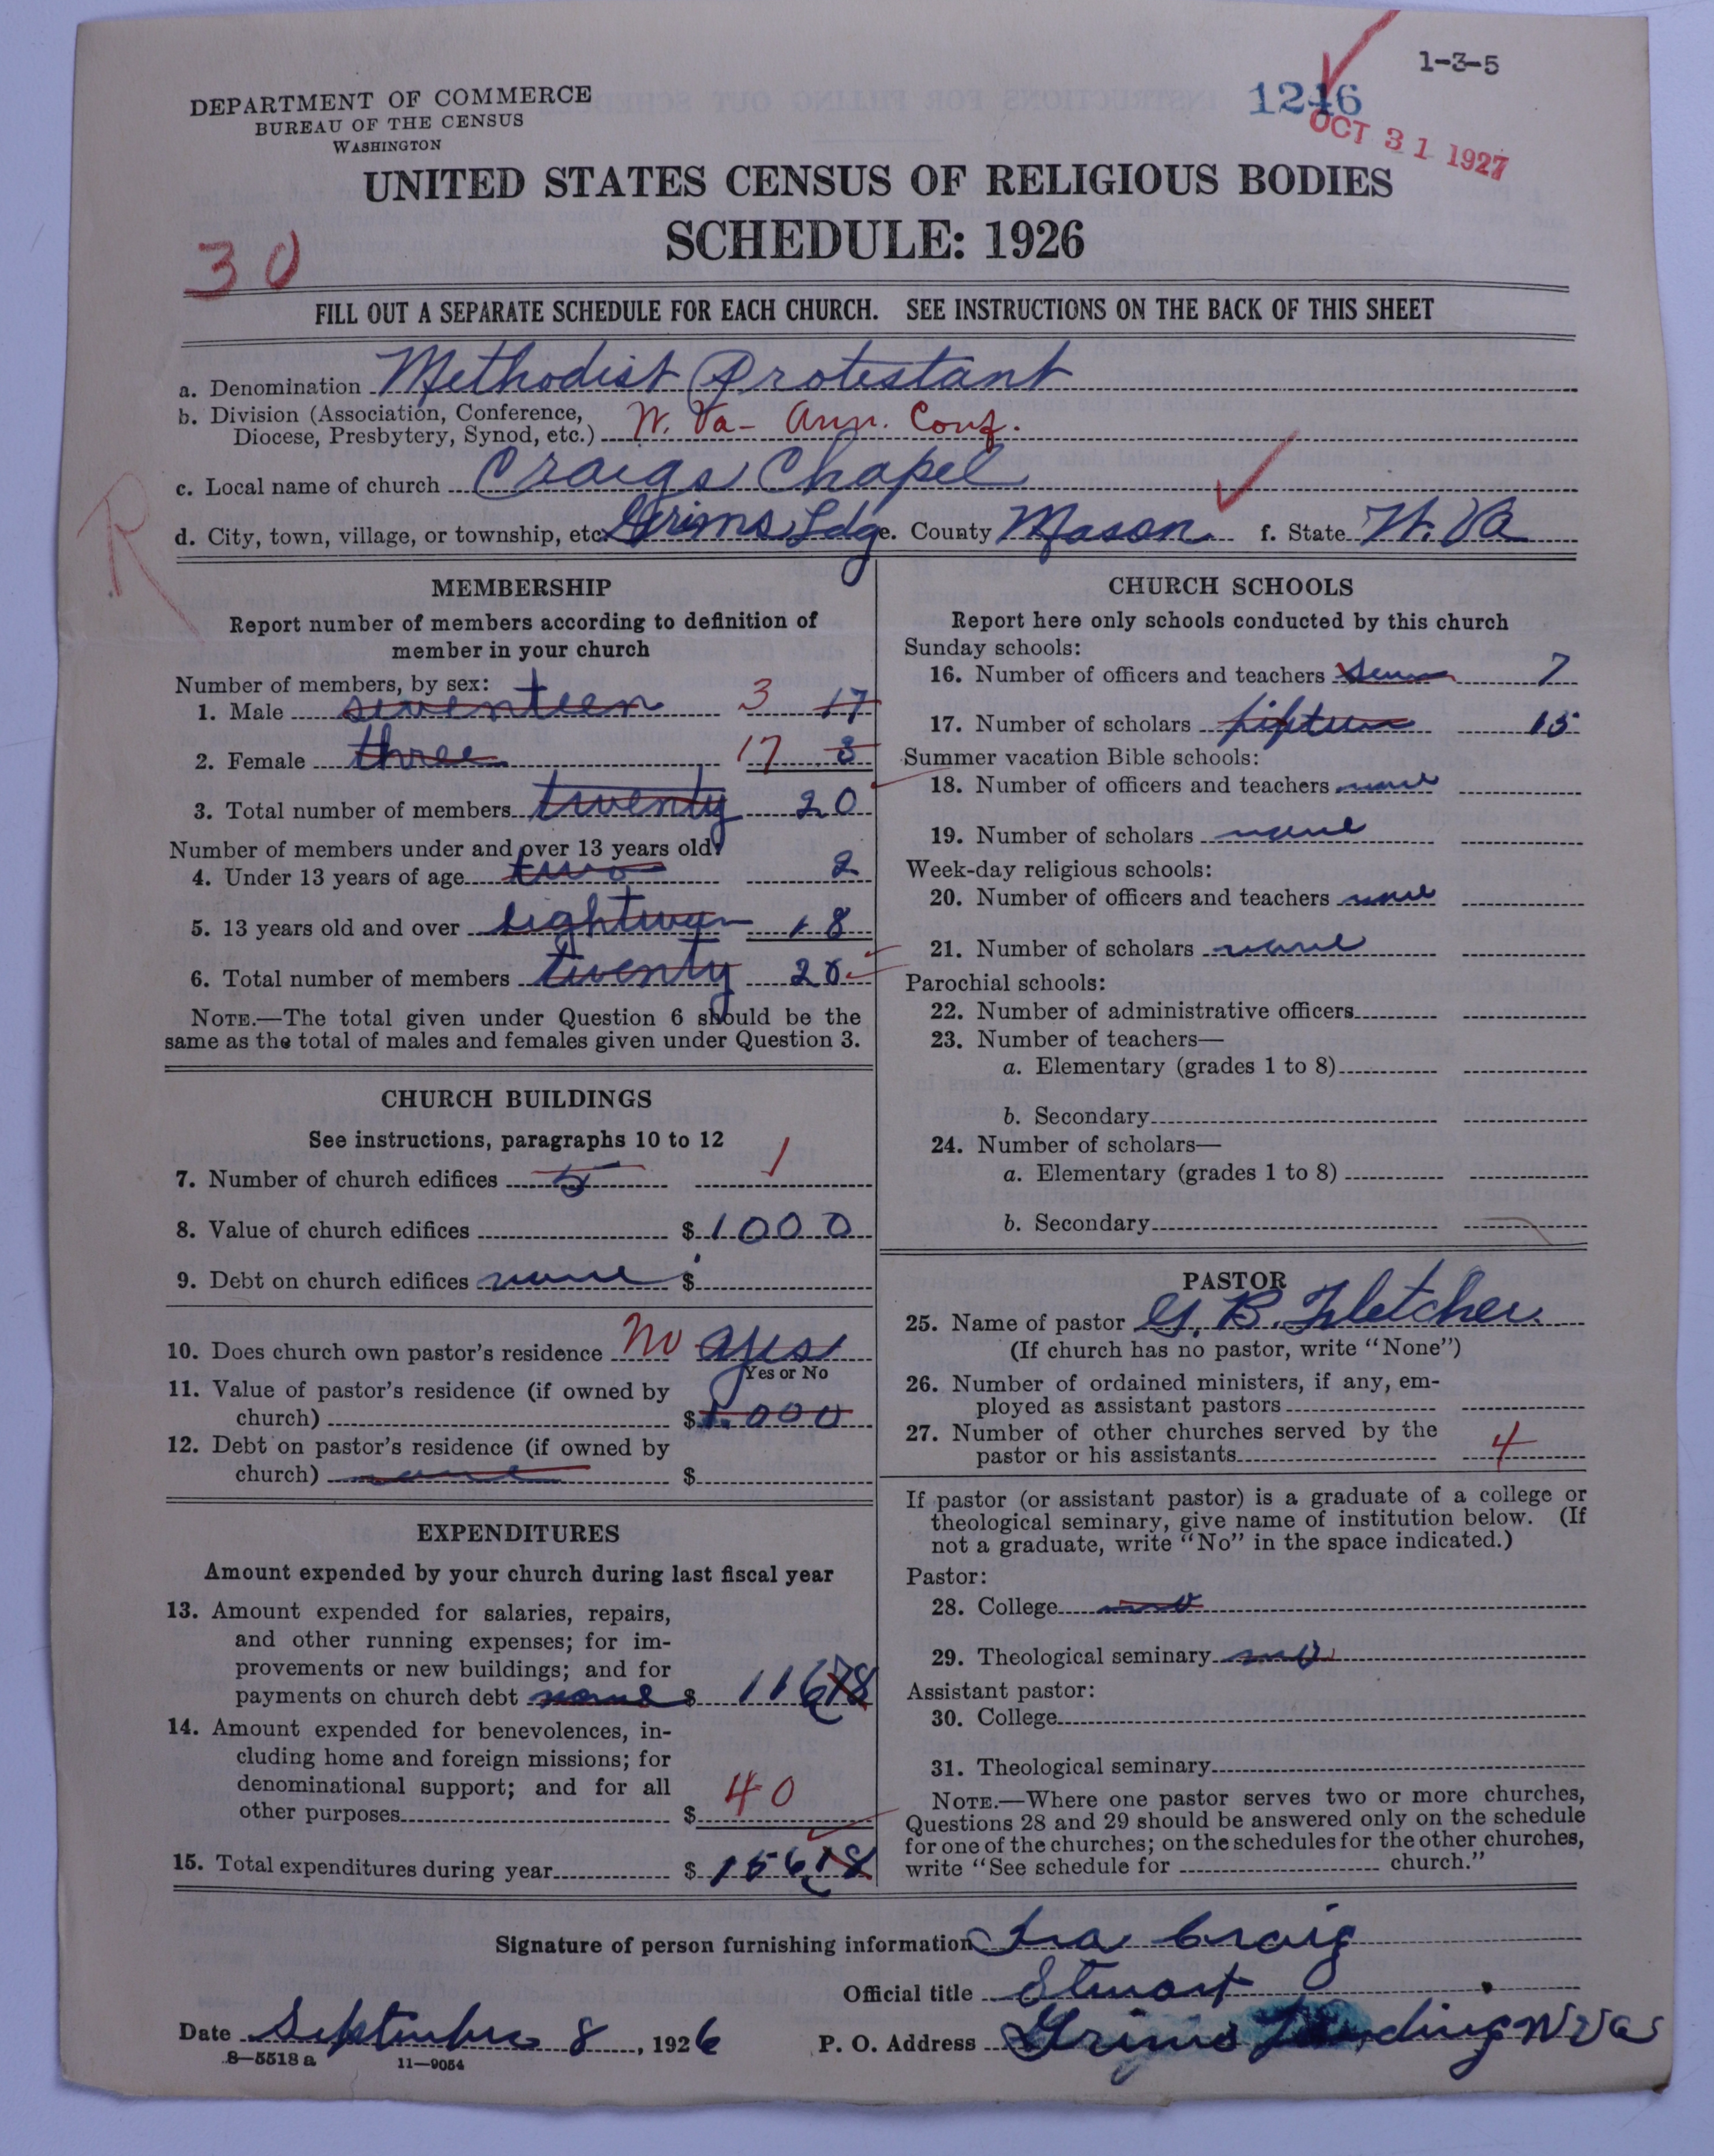 1-3-5
1246
OCT 31 1927
DEPARTMENT OF COMMERCE
BUREAU OF THE CENSUS
WASHINGTON
UNITED STATES CENSUS OF RELIGIOUS BODIES
SCHEDULE: 1926
30
FILL OUT A SEPARATE SCHEDULE FOR EACH CHURCH. SEE INSTRUCTIONS ON THE BACK OF THIS SHEET
a. Denomination Methodist Protestant
b. Division (Association, Conference,
Diocese, Presbytery, Synod, etc.) W. Va- Ann. Conf.
c. Local name of church Craigs Chapel
R
d. City, town, village, or township, etc. Grims Ldg e. County Mason f. State W. Va
MEMBERSHIP
Report number of members according to definition of
member in your church
Number of members, by sex:
1. Male seventeen 3 17
2. Female three 17 3
3. Total number of members twenty 20
Number of members under and over 13 years old:
4. Under 13 years of age two 2
5. 13 years old and over 18
6. Total number of members twenty 20
NOTE.—The total given under Question 6 should be the
same as the total of males and females given under Question 3.
CHURCH BUILDINGS
See instructions, paragraphs 10 to 12
7. Number of church edifices 5 1
8. Value of church edifices $ 1000
9. Debt on church edifices none $
10. Does church own pastor's residence No yes
Yes or No
11. Value of pastor's residence (if owned by
church) $ 1.000
12. Debt on pastor's residence (if owned by
church) none $
EXPENDITURES
Amount expended by your church during last fiscal year
13. Amount expended for salaries, repairs,
and other running expenses; for im-
provements or new buildings; and for
payments on church debt none $ 11678
14. Amount expended for benevolences, in-
cluding home and foreign missions; for
denominational support; and for all
other purposes $ 40
15. Total expenditures during year $ 15618
CHURCH SCHOOLS
Report here only schools conducted by this church
Sunday schools:
16. Number of officers and teachers seven 7
17. Number of scholars fifteen 15
Summer vacation Bible schools:
18. Number of officers and teachers none
19. Number of scholars none
Week-day religious schools:
20. Number of officers and teachers none
21. Number of scholars none
Parochial schools:
22. Number of administrative officers
23. Number of teachers—
a. Elementary (grades 1 to 8)
b. Secondary
24. Number of scholars—
a. Elementary (grades 1 to 8)
b. Secondary
PASTOR
25. Name of pastor G. B. Fletcher
(If church has no pastor, write "None")
26. Number of ordained ministers, if any, em-
ployed as assistant pastors
27. Number of other churches served by the
pastor or his assistants 4
If pastor (or assistant pastor) is a graduate of a college or
theological seminary, give name of institution below. (If
not a graduate, write "No" in the space indicated.)
Pastor:
28. College no
29. Theological seminary no
Assistant pastor:
30. College
31. Theological seminary
NOTE.—Where one pastor serves two or more churches,
Questions 28 and 29 should be answered only on the schedule
for one of the churches; on the schedules for the other churches,
write "See schedule for church."
Signature of person furnishing information Ira Craig
Official title Stuart
Date September 8, 1926 P. O. Address Grims Landing W Va
8—5518 a 11—9054